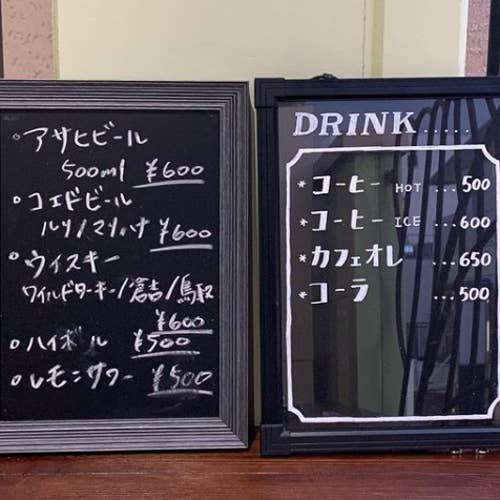 ○アサヒビール
500ml ¥600
○コエドビール
ルリ/マリハナ
¥600
○ウイスキー
ワイルドターキー/倉吉/鳥取
¥600
○ハイボール ¥500
○レモンサワー ¥500
DRINK.....
*コーヒー HOT ...500
*コーヒー ICE ...600
*カフェオレ ...650
*コーラ ...500